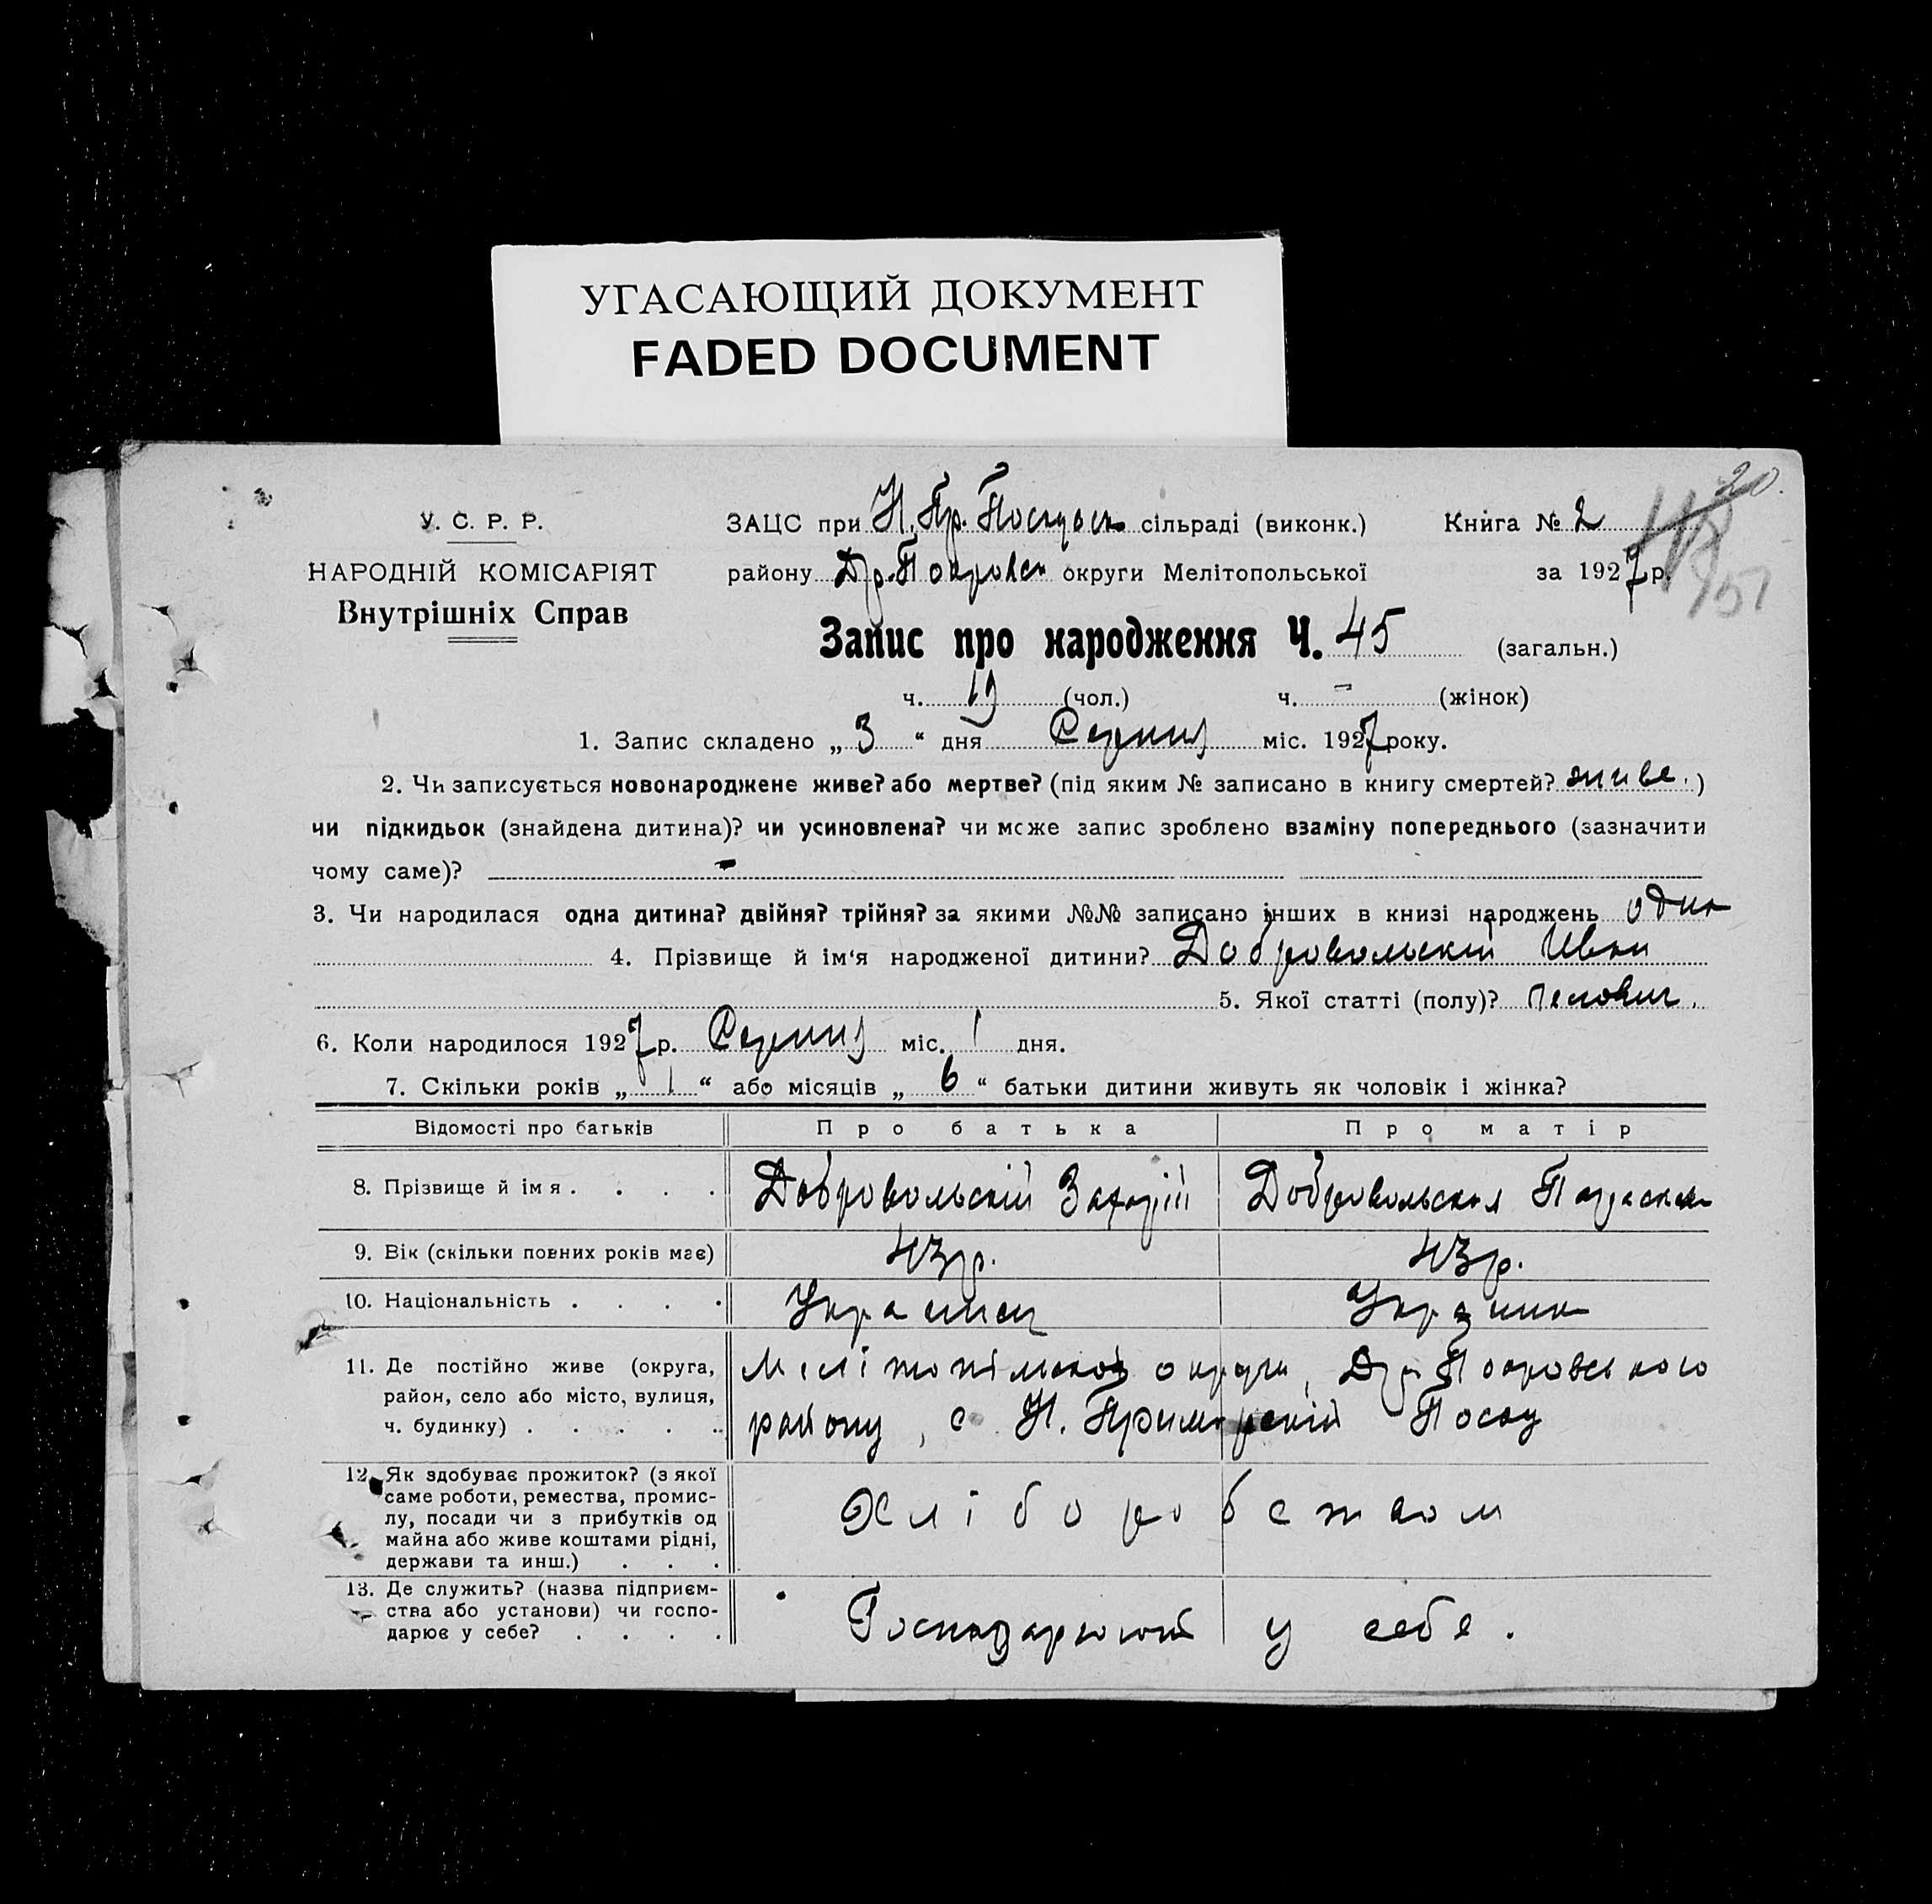 УГАСАЮЩИЙ ДОКУМЕНТ
FADED DOCUMENT
20.
У. С. Р. Р.
НАРОДНІЙ КОМІСАРІЯТ
Внутрішніх Справ
ЗАЦС при Н. Пр. Посадськ сільраді (виконк.) Книга № 2
району Др. Покровськ округи Мелітопольської за 1927 р.
Запис про народження Ч. 45 (загальн.)
ч. 19 (чол.) ч. – (жінок)
1. Запис складено „ 3 “ дня Серпня міс. 1927 року.
2. Чи записується новонароджене живе? або мертве? (під яким № записано в книгу смертей? живе.)
чи підкидьок (знайдена дитина)? чи усиновлена? чи може запис зроблено взаміну попереднього (зазначити
чому саме)? –
3. Чи народилася одна дитина? двійня? трійня? за якими №№ записано інших в книзі народжень одна
4. Прізвище й ім‘я народженої дитини? Добровольскій Иван
5. Якої статті (полу)?
6. Коли народилося 1927 р. Серпня міс. 1 дня.
7. Скільки років „ 1 “ або місяців „ 6 “ батьки дитини живуть як чоловік і жінка?
Відомості про батьків Про батька Про матір
8. Прізвище й імя. . . . . Добровольскій Захарій Добровольская Параска
9. Вік (скільки повних років має) 43 р. 43 р.
10. Національність . . . . Украинец Украинка
11. Де постійно живе (округа, Мелітопільської округи, Др. Покровського
район, село або місто, вулиця,
ч. будинку) . . . . . району, с. Н. Приморскій Посад
12. Як здобуває прожиток? (з якої
саме роботи, ремества, промис-
лу, посади чи з прибутків од Хліборобством
майна або живе коштами рідні,
держави та инш.) . . .
13. Де служить? (назва підприєм-
ства або установи) чи госпо- Господарюють у себе.
дарює у себе? . . . .